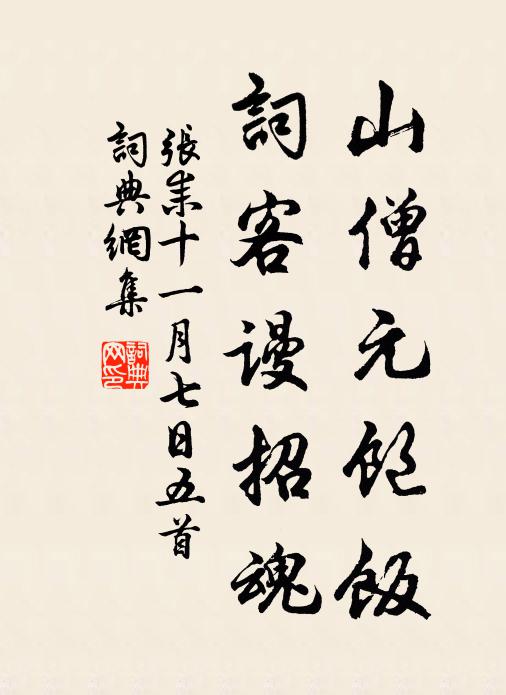 山僧元飽飯
詞客謾招魂
張耒十一月七日五首
詞典網集
詞典網印